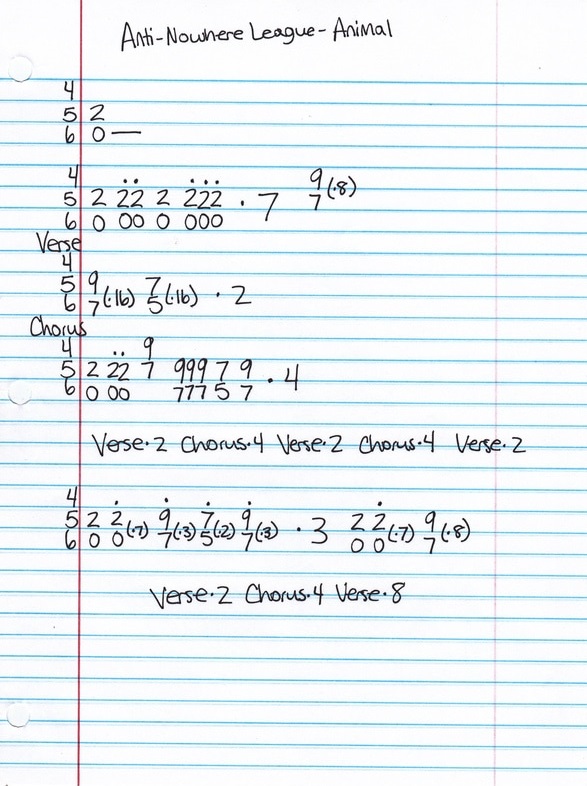 Anti-Nowhere League - Animal
4
5 2
6 0—
4 9(·8)
5 2 22 2 222 · 7 7
6 0 00 0 000
Verse
4
5 9(·16) 7(·16) · 2
6 7 5
Chorus
4 9
5 2 22 7 999 7 9 · 4
6 0 00 777 5 7
Verse·2 Chorus·4 Verse·2 Chorus·4 Verse·2
4
5 2 2(·7) 9(·3) 7(·2) 9(·3) · 3 2 2(·7) 9(·8)
6 0 0 7 5 7 0 0 7
Verse·2 Chorus·4 Verse·8